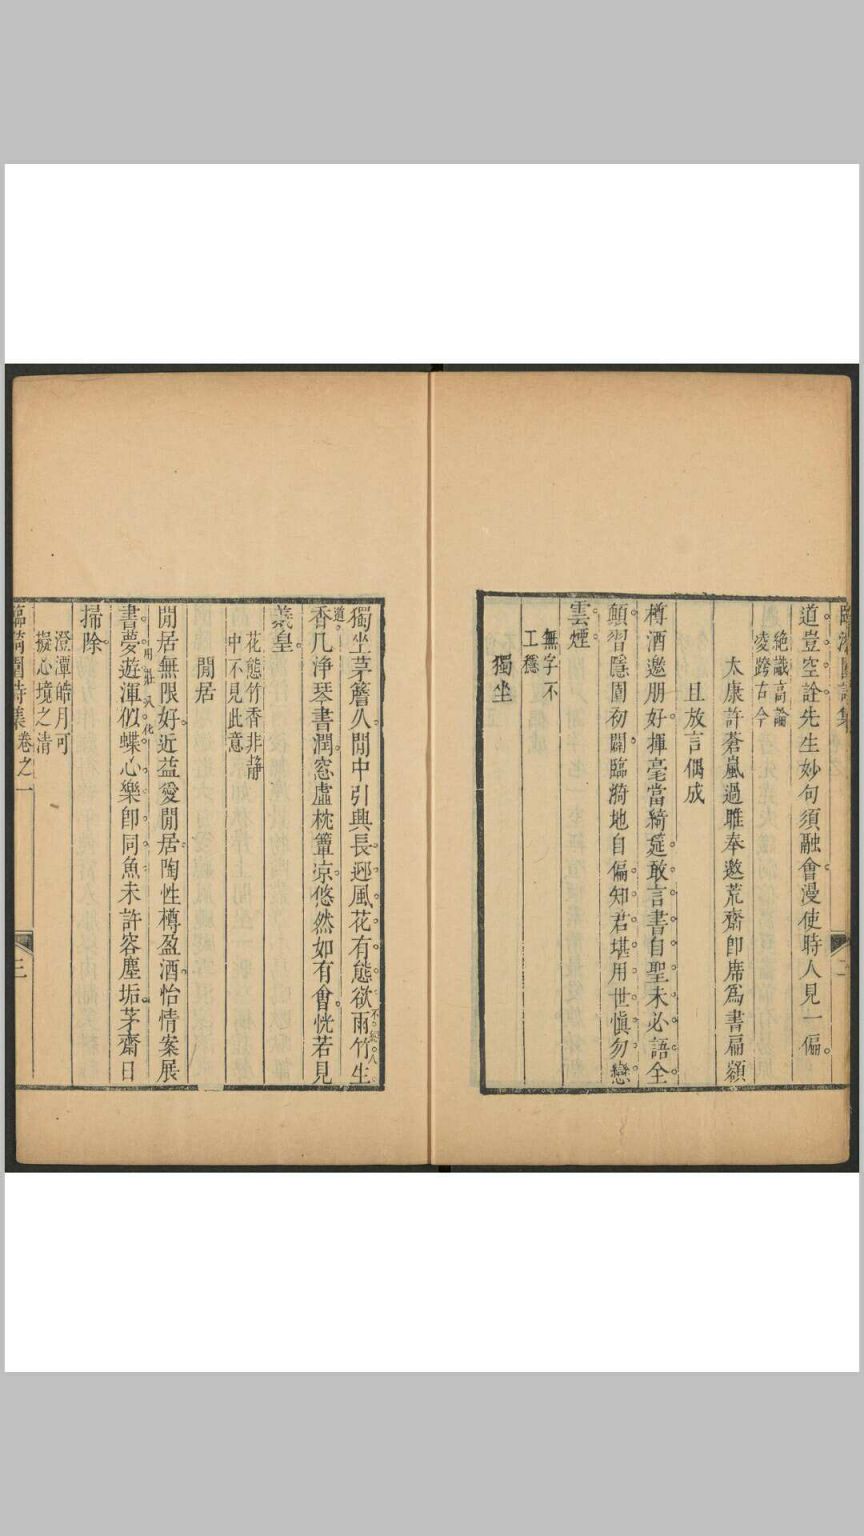 道豈空詮先生妙句須融會漫使時人見一偏
絕識高論
凌跨古今
太康許蒼嵐過雎奉邀荒齋卽席爲書扁額
且放言偶成
樽酒邀朋好揮毫當綺筵敢言書自聖未必語全
顛習隱園初闢臨漪地自偏知君堪用世愼勿戀
雲煙
無字不
工穩
獨坐
二
獨坐茅簷八閒中引興長迎風花有態欲雨竹生
不經人
道
香几淨琴書潤窓虛枕簟凉悠然如有會恍若見
羲皇
花態竹香非靜
中不見此意
閒居
閒居無限好近益愛閒居陶性樽盈酒怡情案展
書夢遊渾似蝶心樂卽同魚未許容塵垢茅齋日
用莊又化
掃除
澄潭皓月可
擬心境之清
臨漪園詩集卷之一
三